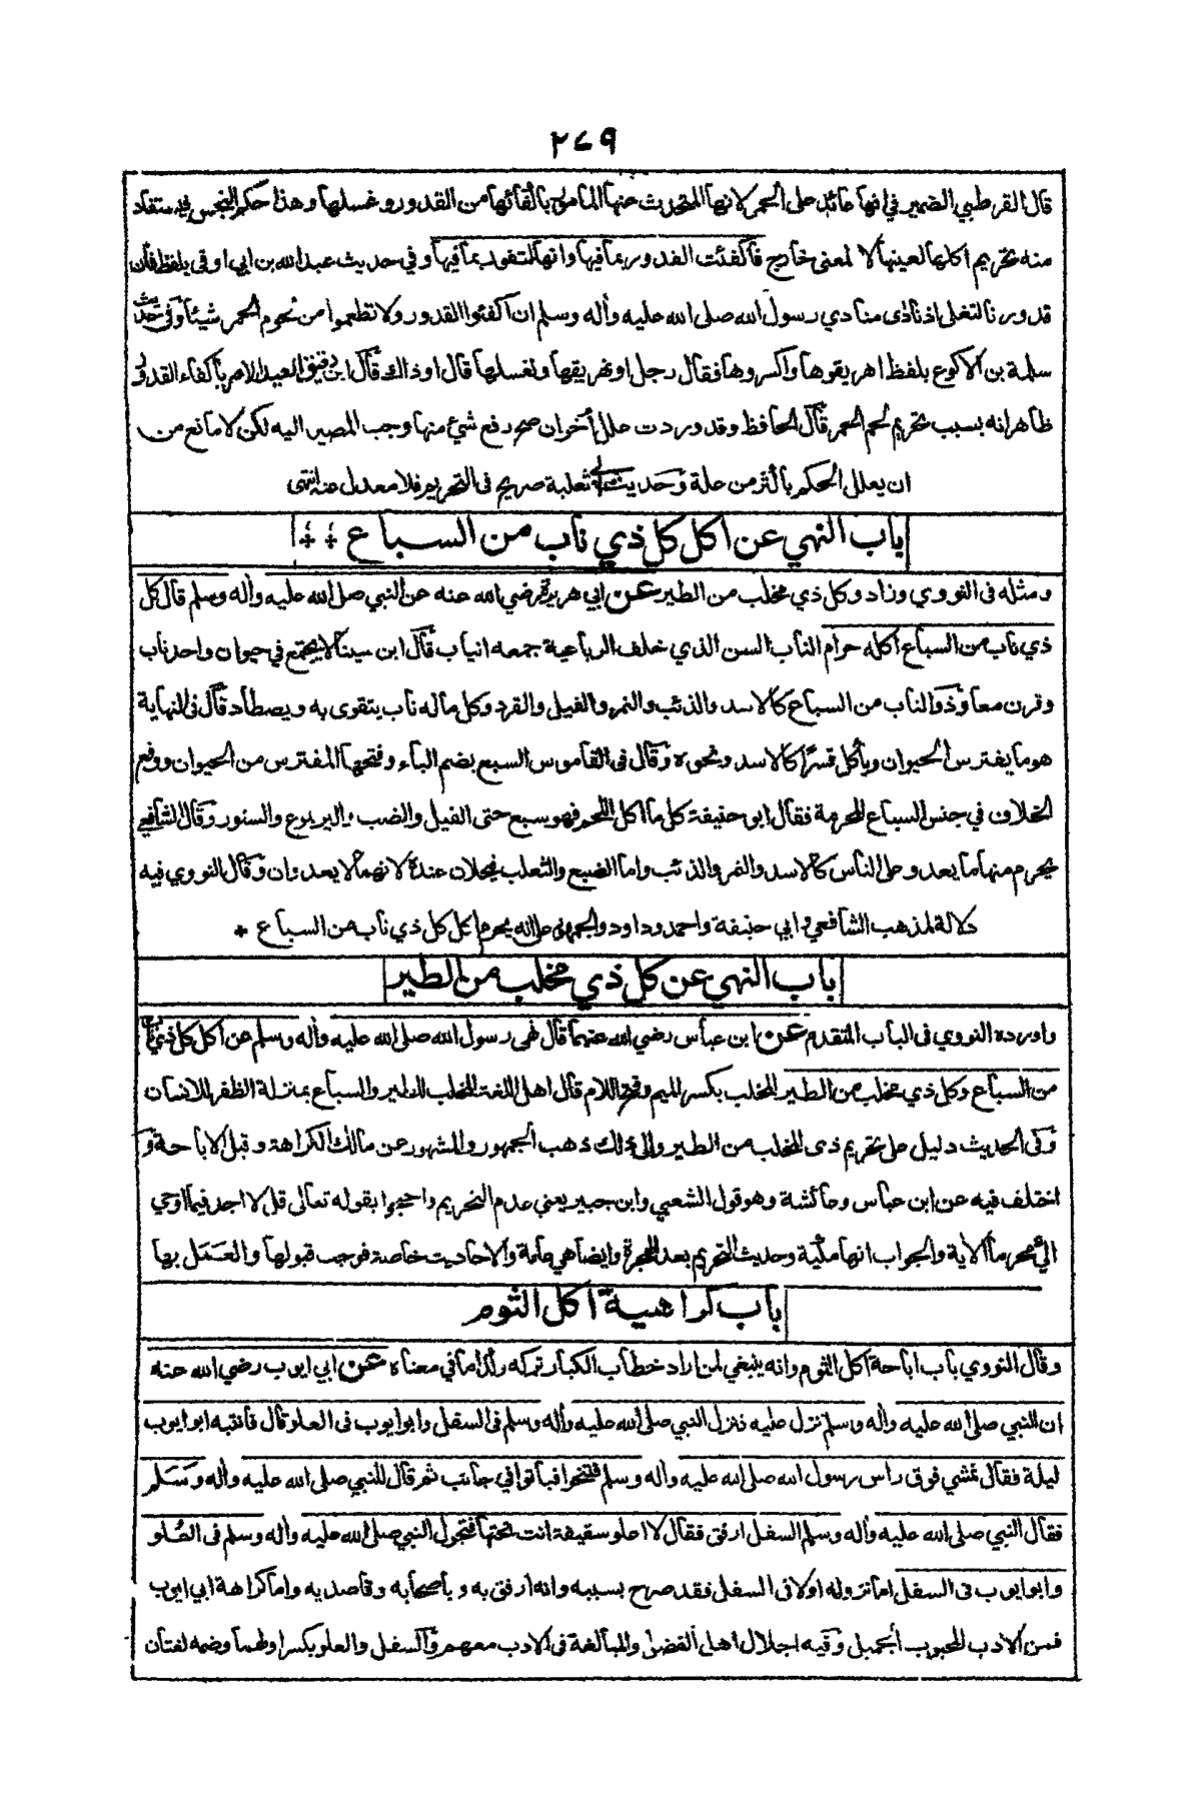 ٢٧٩
قال القرطبي الضمير في انها عائد على الحمر لانها المتحدث عنها المأمور بالقائها من القدور وغسلها وهذا حكم النجس فيستفاد
منه تحريم اكلها لعينها لا لمعنى خارج فاكفئت القدور بما فيها وانها لتفور بما فيها وفي حديث عبد الله بن ابي اوفى بلفظ فان
قدورنا لتغلى اذ نادى منادي رسول الله صلى الله عليه واله وسلم ان اكفئوا القدور ولا تطعموا من لحوم الحمر شيئا وفي حديث
سلمة بن الاكوع بلفظ اهريقوها واكسروها فقال رجل او نهريقها ونغسلها قال او ذاك قال ابن دقيق العيد الامر باكفاء القدور
ظاهر انه بسبب تحريم لحم الحمر قال الحافظ وقد وردت علل أخر ان صح رفع شيء منها وجب المصير اليه لكن لا مانع من
ان يعلل الحكم باكثر من علة وحديث ابي ثعلبة صريح فى التحريم فلا معدل عنه انتهى
باب النهي عن اكل كل ذي ناب من السباع
ومثله فى النووي وزاد وكل ذي مخلب من الطير عن ابي هريرة رضي الله عنه عن النبي صلى الله عليه واله وسلم قال كل
ذي ناب من السباع اكله حرام الناب السن الذي خلف الرباعية جمعه انياب قال ابن سينا لا يجتمع في حيوان واحد ناب
وقرن معا وذو الناب من السباع كالاسد والذئب والنمر والفيل والقرد وكل ما له ناب يتقوى به ويصطاد قال فى النهاية
هو ما يفترس الحيوان ويأكل قسرًا كالاسد ونحوه وقال فى القاموس السبع بضم الباء وفتحها المفترس من الحيوان ووقع
الخلاف في جنس السباع المحرمة فقال ابو حنيفة كل ما اكل اللحم فهو سبع حتى الفيل والضب واليربوع والسنور وقال الشافعي
يحرم منها ما يعدو على الناس كالاسد والنمر والذئب واما الضبع والثعلب فيحلان عنده لانهما لا يعدوان وقال النووي فيه
دلالة لمذهب الشافعي وابي حنيفة واحمد وداود والجمهور على انه يحرم اكل كل ذي ناب من السباع *
باب النهي عن كل ذي مخلب من الطير
واورده النووي فى الباب المتقدم عن ابن عباس رضي الله عنهما قال نهى رسول الله صلى الله عليه واله وسلم عن اكل كل ذي ناب
من السباع وكل ذي مخلب من الطير المخلب بكسر الميم وفتح اللام قال اهل اللغة المخلب للطير والسباع بمنزلة الظفر للانسان
وفى الحديث دليل على تحريم ذى المخلب من الطير والى ذلك ذهب الجمهور والمشهور عن مالك الكراهة وقيل الاباحة و
اختلف فيه عن ابن عباس وعائشة وهو قول الشعبي وابن جبير يعني عدم التحريم واحتجوا بقوله تعالى قل لا اجد فيما اوحي
الي محرما الاية والجواب انها مكية وحديث التحريم بعد الهجرة وايضا هي عامة والاحاديث خاصة فوجب قبولها والعمل بها
باب كراهية اكل الثوم
وقال النووي باب اباحة اكل الثوم وانه ينبغي لمن اراد خطاب الكبار تركه وكذا ما في معناه عن ابي ايوب رضي الله عنه
ان النبي صلى الله عليه واله وسلم نزل عليه فنزل النبي صلى الله عليه واله وسلم فى السفل وابو ايوب فى العلو قال فانتبه ابو ايوب
ليلة فقال نمشي فوق راس رسول الله صلى الله عليه واله وسلم فتنحوا فباتوا في جانب ثم قال للنبي صلى الله عليه واله وسلم
فقال النبي صلى الله عليه واله وسلم السفل ارفق فقال لا اعلو سقيفة انت تحتها فتحول النبي صلى الله عليه واله وسلم فى العلو
وابو ايوب فى السفل اما نزوله اولا فى السفل فقد صرح بسببه وانه ارفق به وباصحابه وقاصديه واما كراهة ابي ايوب
فمن الادب المحبوب الجميل وفيه اجلال اهل الفضل والمبالغة فى الادب معهم والسفل والعلو بكسر اولهما وضمه لغتان